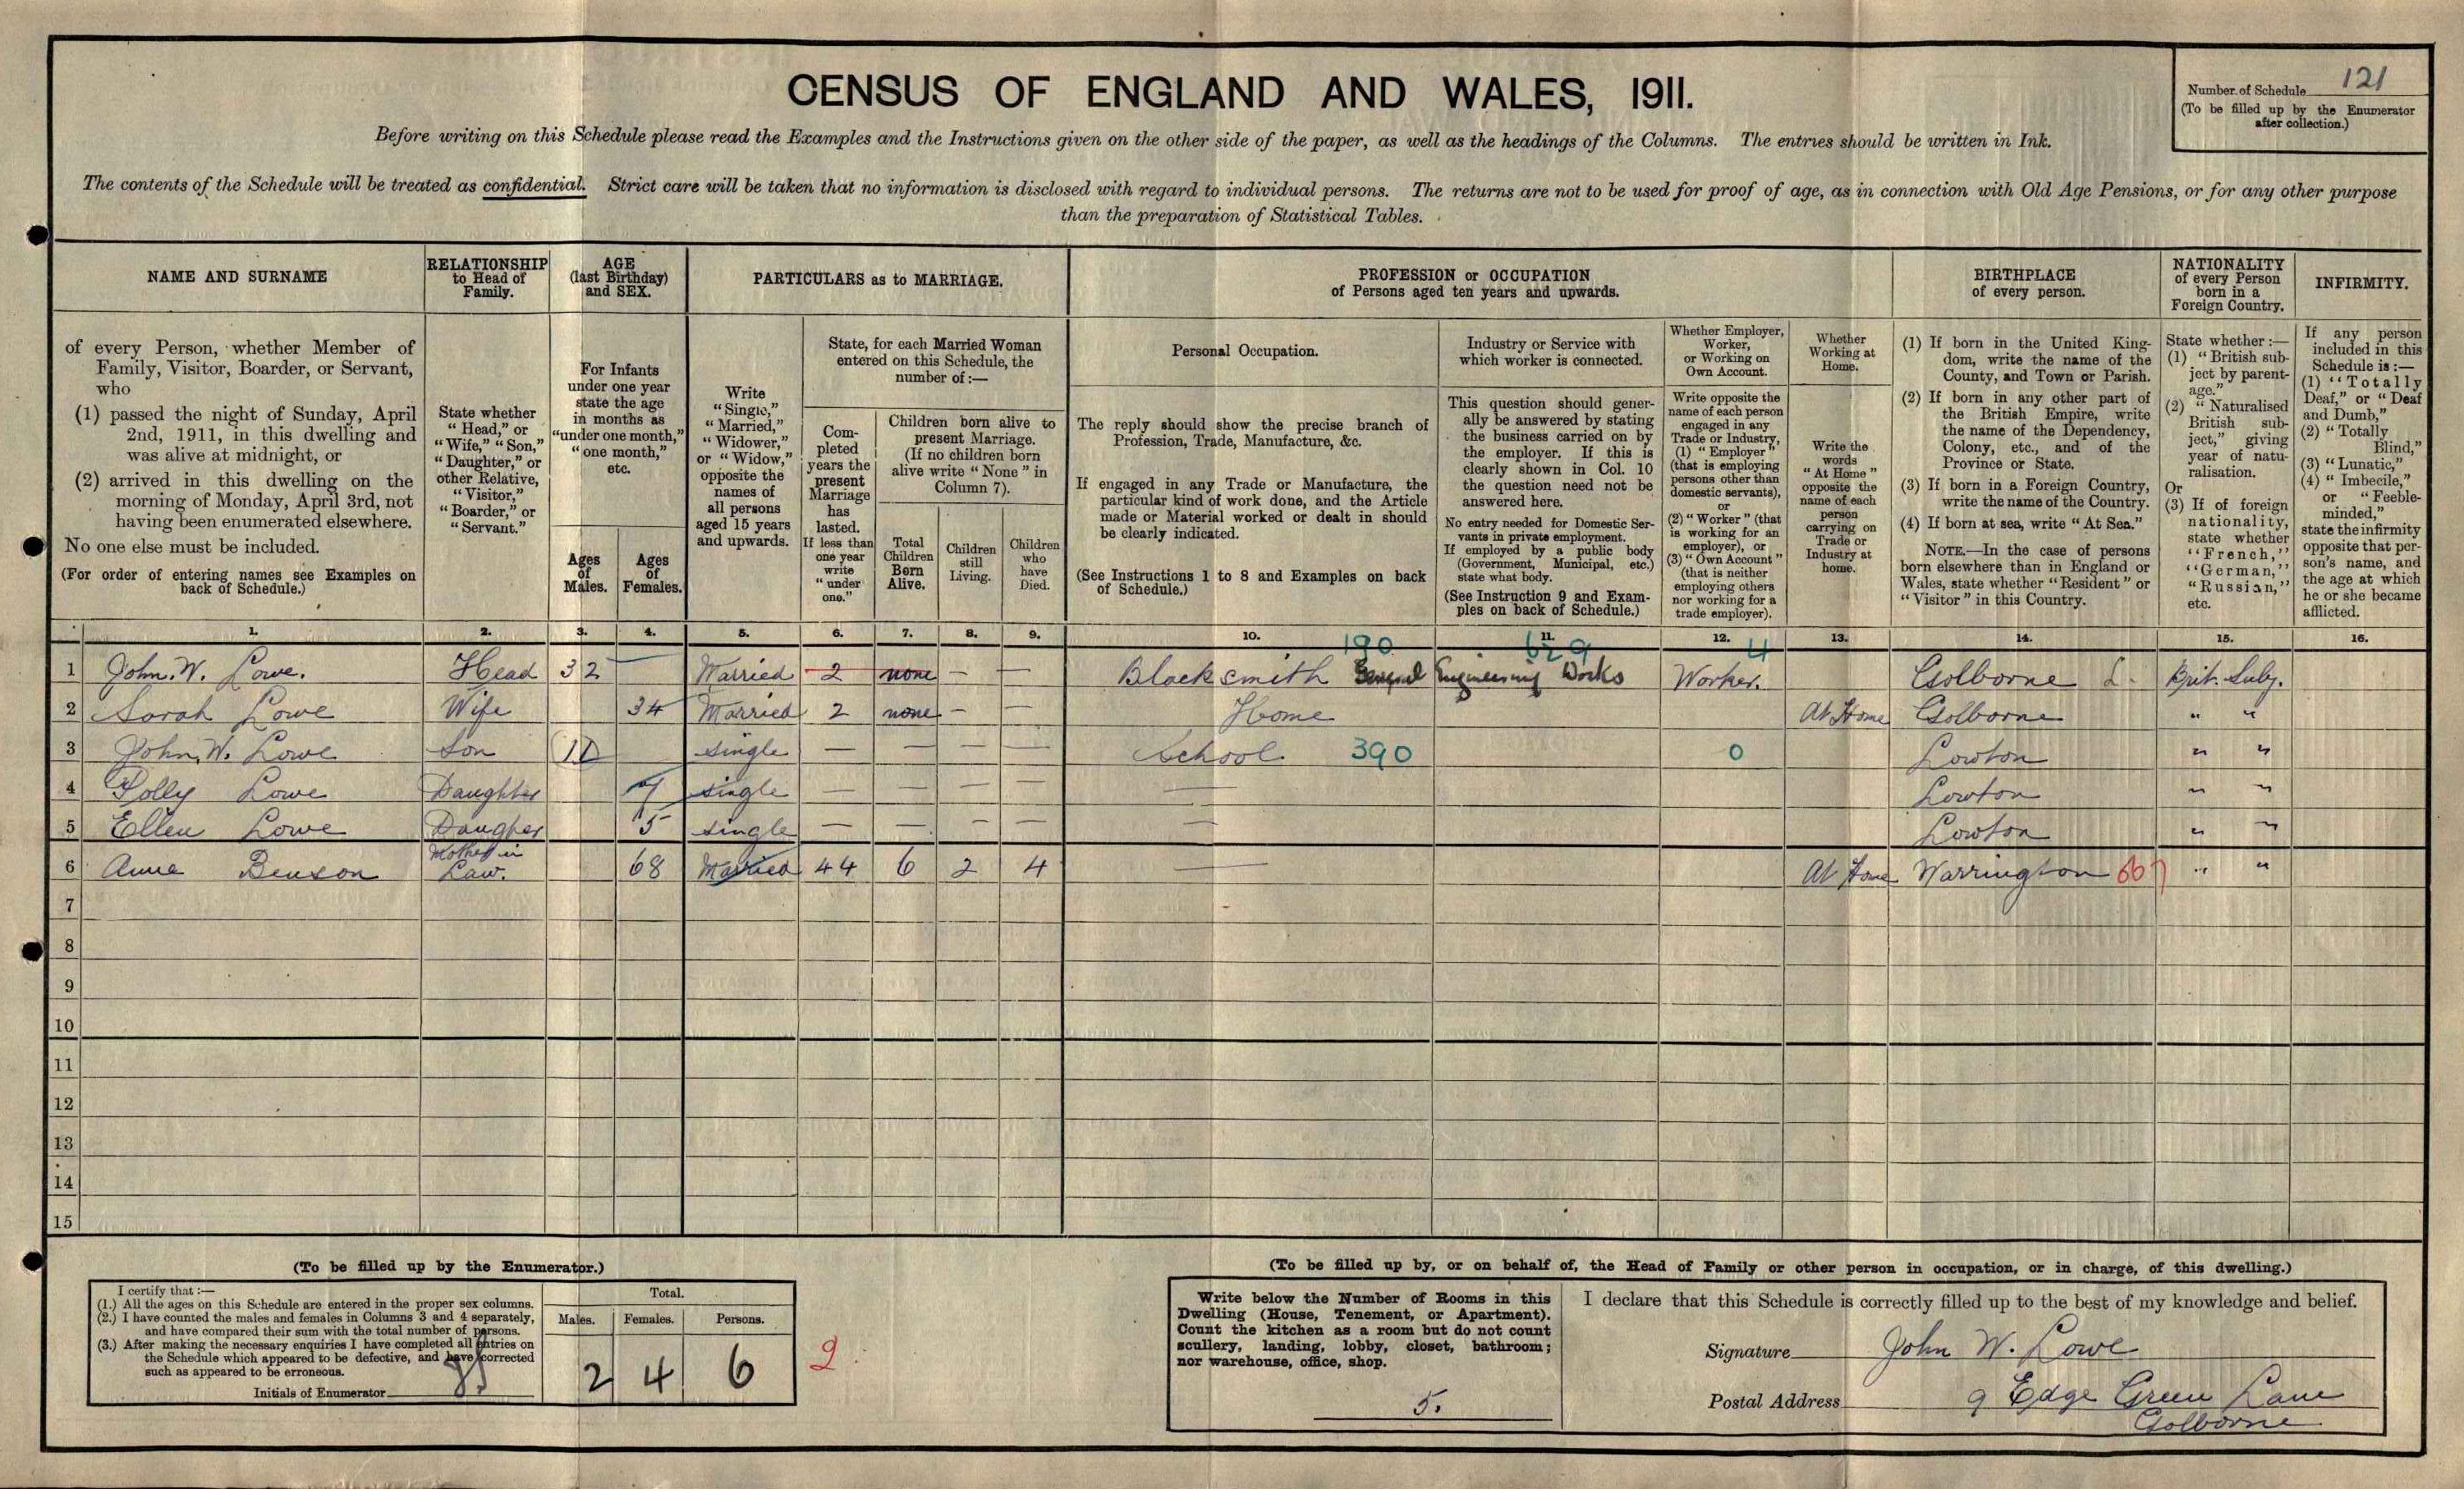 CENSUS OF ENGLAND AND WALES, 1911.
Number of Schedule 121
(To be filled up by the Enumerator
after collection.)
Before writing on this Schedule please read the Examples and the Instructions given on the other side of the paper, as well as the headings of the Columns. The entries should be written in Ink.
The contents of the Schedule will be treated as confidential. Strict care will be taken that no information is disclosed with regard to individual persons. The returns are not to be used for proof of age, as in connection with Old Age Pensions, or for any other purpose
than the preparation of Statistical Tables.
NAME AND SURNAME
of every Person, whether Member of
Family, Visitor, Boarder, or Servant,
who
(1) passed the night of Sunday, April
2nd, 1911, in this dwelling and
was alive at midnight, or
(2) arrived in this dwelling on the
morning of Monday, April 3rd, not
having been enumerated elsewhere.
No one else must be included.
(For order of entering names see Examples on
back of Schedule.)
RELATIONSHIP
to Head of
Family.
State whether
"Head," or
"Wife," "Son,"
"Daughter," or
other Relative,
"Visitor,"
"Boarder," or
"Servant."
AGE
(last Birthday)
and SEX.
For Infants
under one year
state the age
in months as
"under one month,"
"one month,"
etc.
Ages
of
Males.
Ages
of
Females.
PARTICULARS as to MARRIAGE.
Write
"Single,"
"Married,"
"Widower,"
or "Widow,"
opposite the
names of
all persons
aged 15 years
and upwards.
State, for each Married Woman
entered on this Schedule, the
number of:—
Com-
pleted
years the
present
Marriage
has
lasted.
If less than
one year
write
"under
one."
Children born alive to
present Marriage.
(If no children born
alive write "None" in
Column 7).
Total
Children
Born
Alive.
Children
still
Living.
Children
who
have
Died.
PROFESSION or OCCUPATION
of Persons aged ten years and upwards.
Personal Occupation.
The reply should show the precise branch of
Profession, Trade, Manufacture, &c.
If engaged in any Trade or Manufacture, the
particular kind of work done, and the Article
made or Material worked or dealt in should
be clearly indicated.
(See Instructions 1 to 8 and Examples on back
of Schedule.)
Industry or Service with
which worker is connected.
This question should gener-
ally be answered by stating
the business carried on by
the employer. If this is
clearly shown in Col. 10
the question need not be
answered here.
No entry needed for Domestic Ser-
vants in private employment.
If employed by a public body
(Government, Municipal, etc.)
state what body.
(See Instruction 9 and Exam-
ples on back of Schedule.)
Whether Employer,
Worker,
or Working on
Own Account.
Write opposite the
name of each person
engaged in any
Trade or Industry,
(1) "Employer"
(that is employing
persons other than
domestic servants),
or
(2) "Worker" (that
is working for an
employer), or
(3) "Own Account"
(that is neither
employing others
nor working for a
trade employer).
Whether
Working at
Home.
Write the
words
"At Home"
opposite the
name of each
person
carrying on
Trade or
Industry at
home.
BIRTHPLACE
of every person.
(1) If born in the United King-
dom, write the name of the
County, and Town or Parish.
(2) If born in any other part of
the British Empire, write
the name of the Dependency,
Colony, etc., and of the
Province or State.
(3) If born in a Foreign Country,
write the name of the Country.
(4) If born at sea, write "At Sea."
NOTE.—In the case of persons
born elsewhere than in England or
Wales, state whether "Resident" or
"Visitor" in this Country.
NATIONALITY
of every Person
born in a
Foreign Country.
State whether:—
(1) "British sub-
ject by parent-
age."
(2) "Naturalised
British sub-
ject," giving
year of natu-
ralisation.
Or
(3) If of foreign
nationality,
state whether
"French,"
"German,"
"Russian,"
etc.
INFIRMITY.
If any person
included in this
Schedule is:—
(1) "Totally
Deaf," or "Deaf
and Dumb,"
(2) "Totally
Blind,"
(3) "Lunatic,"
(4) "Imbecile,"
or "Feeble-
minded,"
state the infirmity
opposite that per-
son's name, and
the age at which
he or she became
afflicted.
1. 2. 3. 4. 5. 6. 7. 8. 9. 10. 11. 12. 13. 14. 15. 16.
190 629 4
1 John. W. Lowe. Head 32 — Married 2 none — — Blacksmith General Engineering Works Worker. Golborne L. Brit. Subj.
2 Sarah Lowe Wife 34 Married 2 none — — Home At Home Golborne " "
3 John. W. Lowe Son 10 single — — — — School. 390 0 Lowton " "
4 Polly Lowe Daughter 7 single — — — — — Lowton " "
5 Ellen Lowe Daugher 5 single — — — — — Lowton " "
6 Anne Benson Mother in Law. 68 Married 44 6 2 4 — At Home Warrington 667 " "
7
8
9
10
11
12
13
14
15
(To be filled up by the Enumerator.)
I certify that:—
(1.) All the ages on this Schedule are entered in the proper sex columns.
(2.) I have counted the males and females in Columns 3 and 4 separately,
and have compared their sum with the total number of persons.
(3.) After making the necessary enquiries I have completed all entries on
the Schedule which appeared to be defective, and have corrected
such as appeared to be erroneous.
Initials of Enumerator
Total.
Males. Females. Persons.
2 4 6
2
(To be filled up by, or on behalf of, the Head of Family or other person in occupation, or in charge, of this dwelling.)
Write below the Number of Rooms in this
Dwelling (House, Tenement, or Apartment).
Count the kitchen as a room but do not count
scullery, landing, lobby, closet, bathroom;
nor warehouse, office, shop.
5.
I declare that this Schedule is correctly filled up to the best of my knowledge and belief.
Signature John W. Lowe
Postal Address 9 Edge Green Lane
Golborne